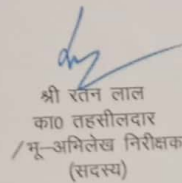 श्री रतन लाल
का0 तहसीलदार
/ भू-अभिलेख निरीक्षक
(सदस्य)